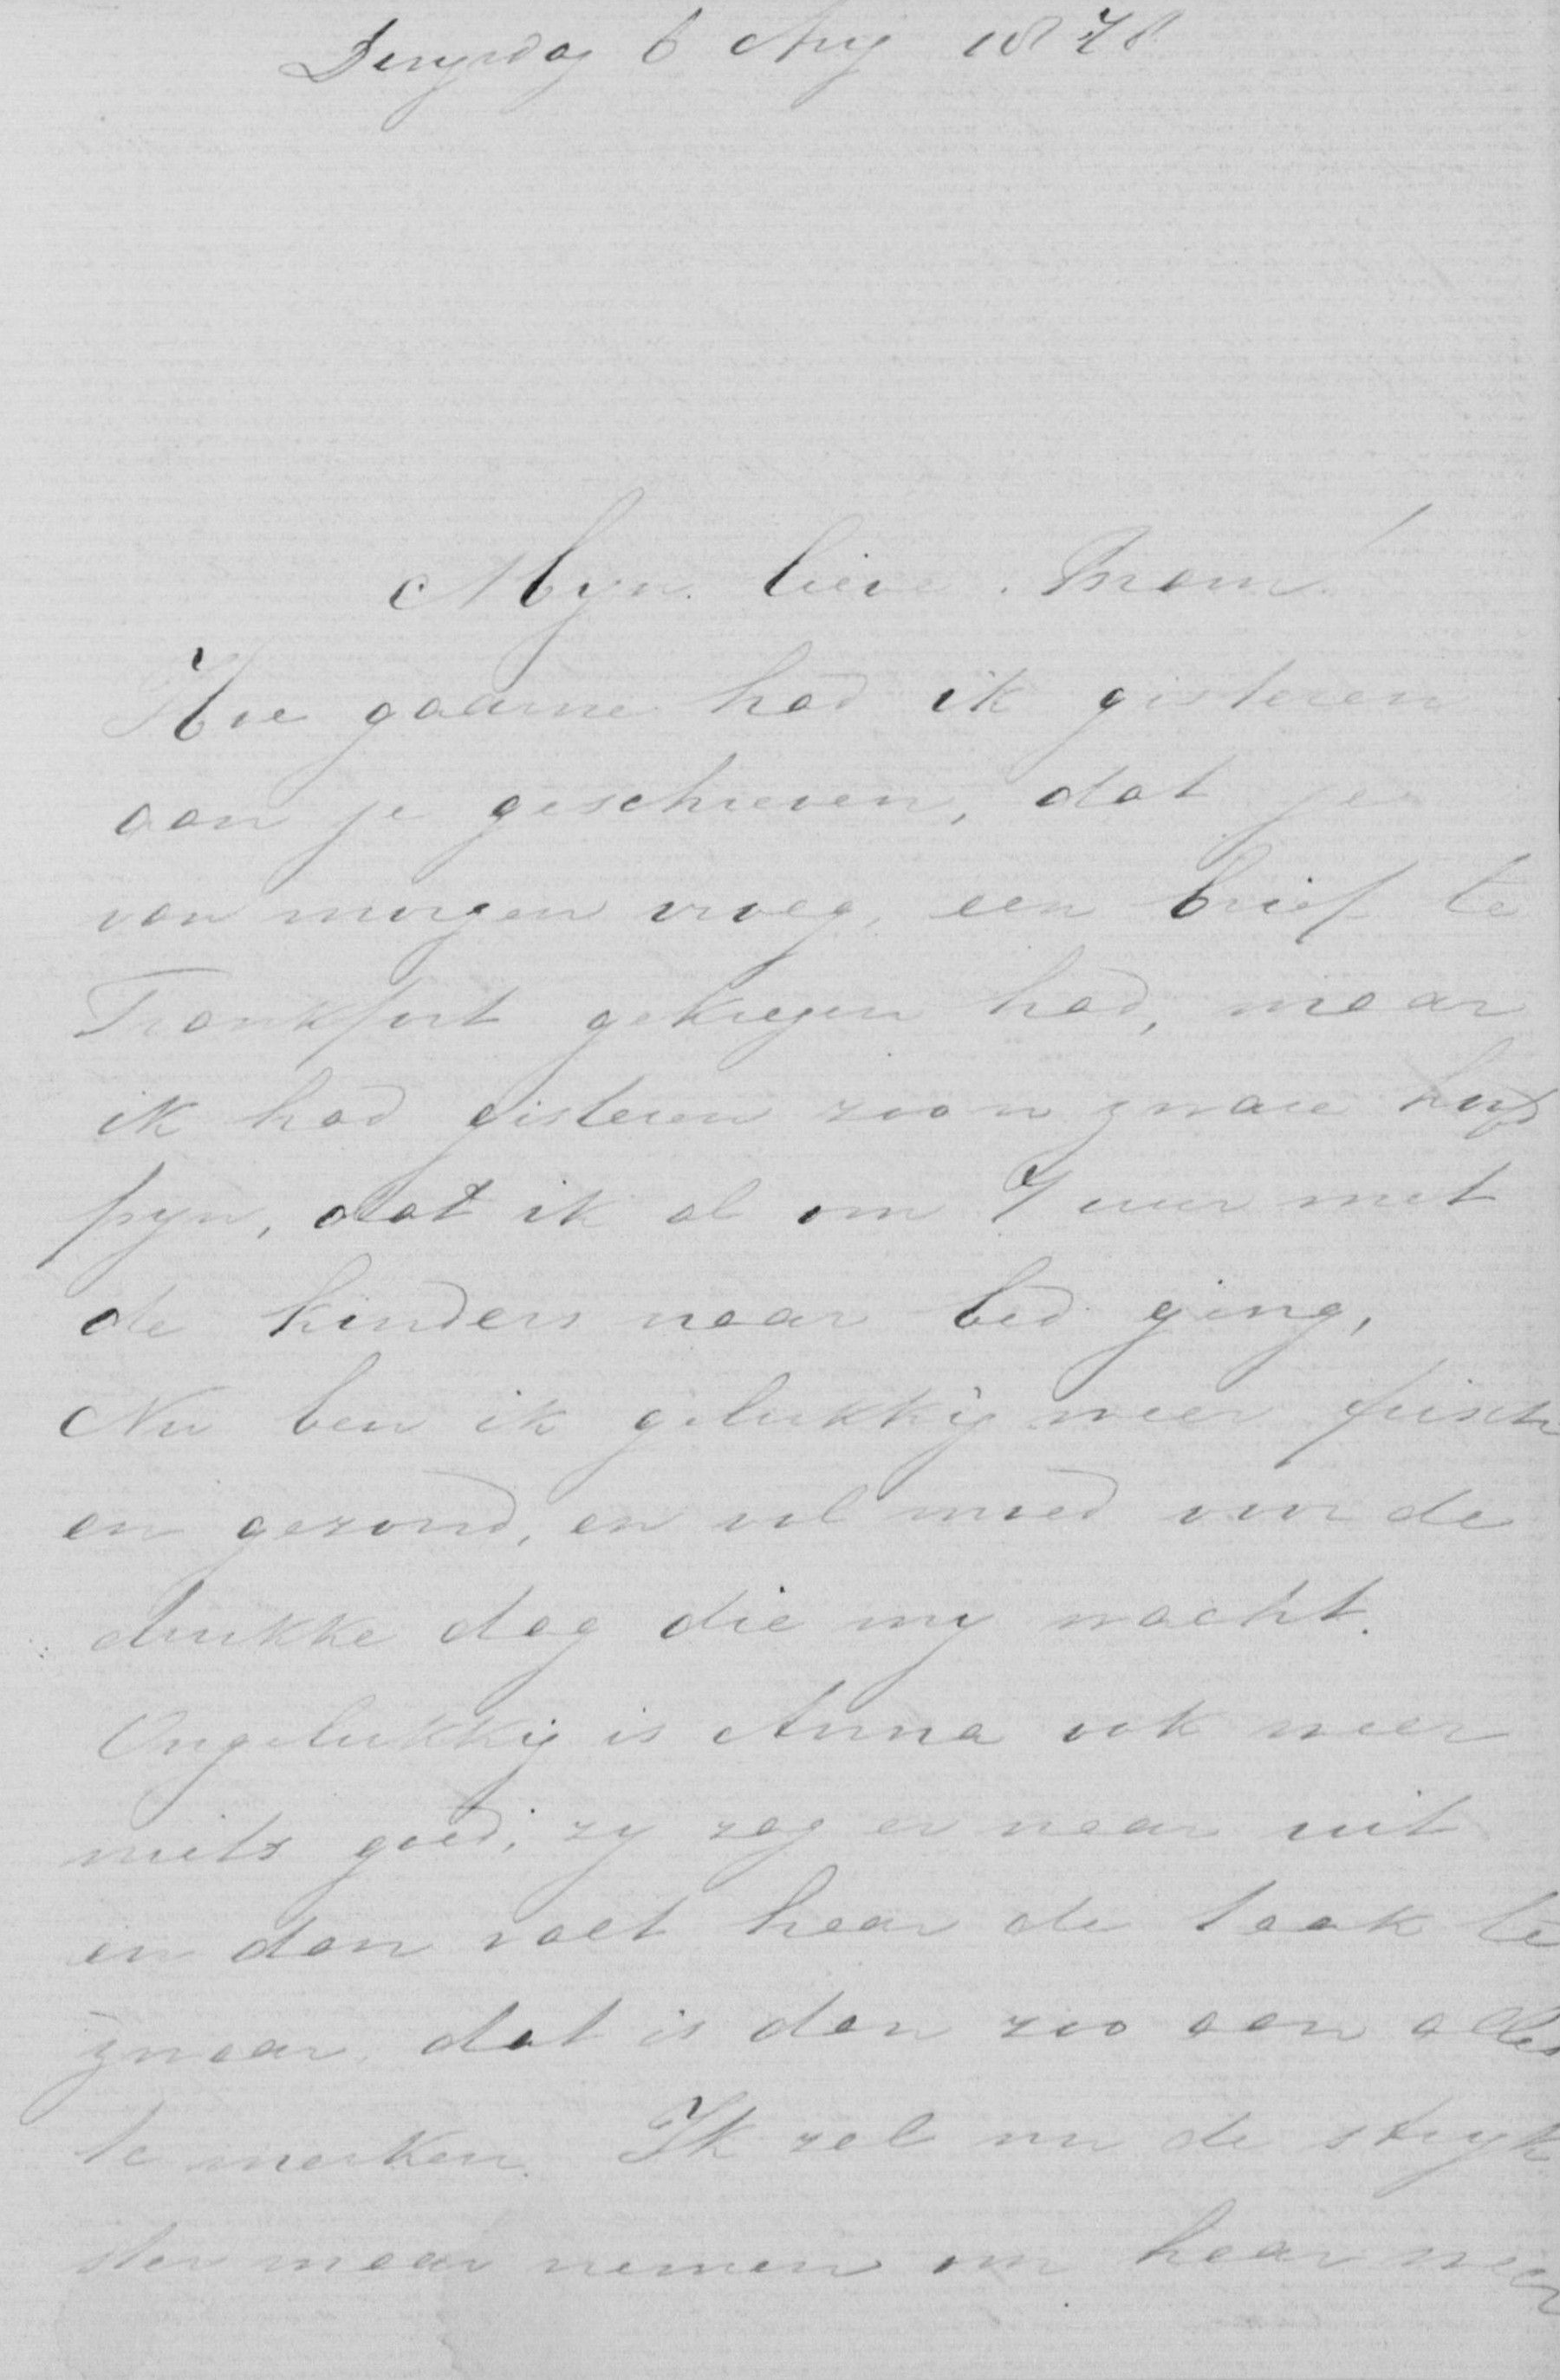 Dingsdag 6 Aug 1878
Myn lieve Mom!
Hoe gaarne had ik gisteren
aan je geschreven, dat je
van morgen vroeg, een brief te
Frankfort gekregen had, maar
ik had gisteren zoo'n zware hoofd
pyn, dat ik al om 7 uur met
de kinders naar bed ging,
Nu ben ik gelukkig weer frisch
en gezond, en vol moed voor de
drukke dag die my wacht.
Ongelukkig is Anna ook weer
niets goed; zy zag er naar uit
en dan valt haar de taak te
zwaar, dat is dan zoo aan alles
te merken. Ik zal nu de stryk
ster maar nemen om haar weer